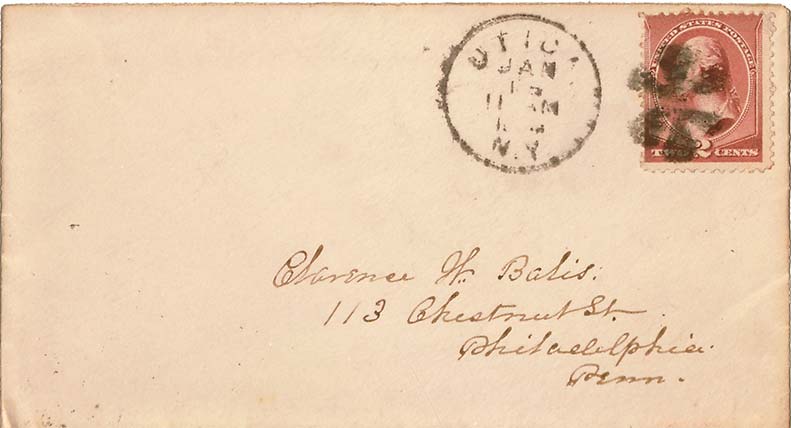 UTICA
JAN
11 AM
N.Y.
UNITED STATES POSTAGE
TWO 2 CENTS
Clarence W. Balis.
113 Chestnut St.
Philadelphia.
Penn.